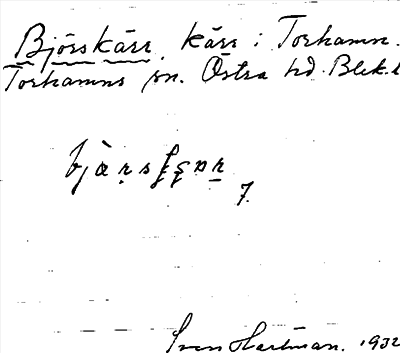 Björskärr, kärr i Torhamn.
Torhamns sn. Östra hd. Blek. l
7.
Sven Hartman. 1932